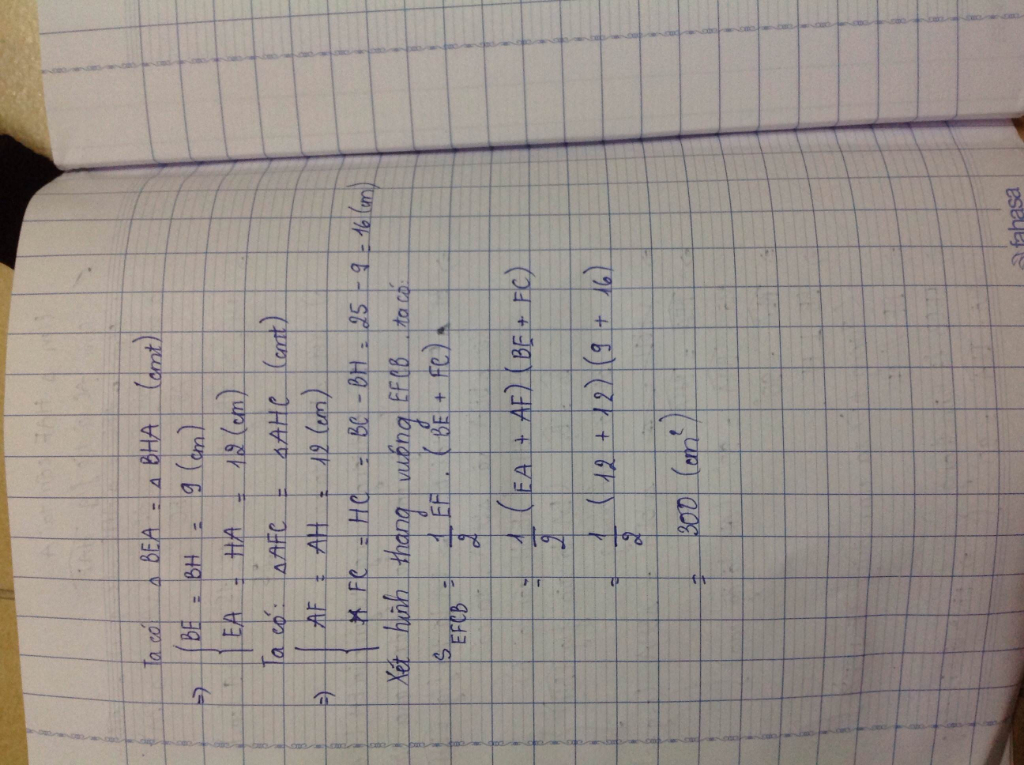 Ta có △ BEA = △ BHA (cmt)
=> { BE = BH = 9 (cm)
EA = HA = 12 (cm)
Ta có: △AFC = △AHC (cmt)
=> { AF = AH = 12 (cm)
* FC = HC = BC - BH = 25 - 9 = 16 (cm)
Xét hình thang vuông EFCB ta có:
S EFCB = 1/2 EF . (BE + FC)
= 1/2 (EA + AF) (BE + FC)
= 1/2 (12 + 12) (9 + 16)
= 300 (cm²)
fahasa